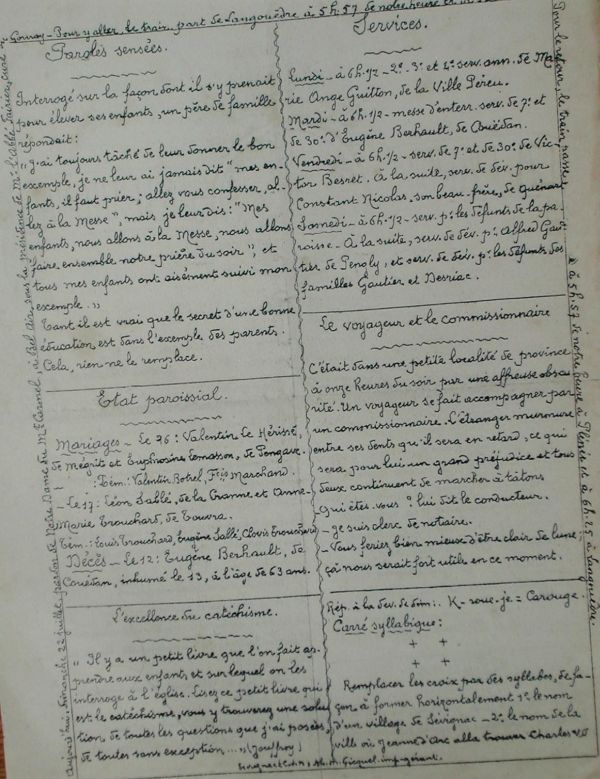 Gouray - Pour y aller, le train part de Langouèdre à 5h.57 de notre heure et
Paroles sensées.
Interrogé sur la façon dont il s'y prenait
pour élever ses enfants, un père de famille
répondait:
"J'ai toujours tâché de leur donner le bon
exemple, je ne leur ai jamais dit "mes en-
fants, il faut prier; allez vous confesser, al-
lez à la Messe", mais je leur dis: "Mes
enfants, nous allons à la Messe, nous allons
faire ensemble notre prière du soir"; et
tous mes enfants ont aisément suivi mon
exemple."
Tant il est vrai que le secret d'une bonne
éducation est dans l'exemple des parents.
Cela, rien ne le remplace.
Etat paroissial.
Mariages - Le 26: Valentin Le Hérissé,
de Mégrit et Euphrosine Lemasson, de Pengave.
Tém: Valentin Botrel, Fçis Marchand.
- Le 17: Léon Sablé, de la Cranne et Anne-
Marie Trouchard, de Touvra.
Tém.: Louis Trouchard, Eugène Sallé, Clovis Trouchard
Décès - Le 12: Eugène Berhault, de
Couëdan, inhumé le 13, à l'âge de 63 ans.
L'excellence du catéchisme.
"Il y a un petit livre que l'on fait ap-
prendre aux enfants et sur lequel on les
interroge à l'église. Lisez ce petit livre qui
est le catéchisme, vous y trouverez une solu-
tion de toutes les questions que j'ai posées,
de toutes sans exception..." (Jouffroy)
Services.
Lundi - à 6h.1/2 - 2e. 3e et 4e serv. ann. de Ma-
rie Ange Guitton, de la Ville Péreu.
Mardi - à 6h.1/2 - messe d'enterr. serv. de 7e et
de 30e d'Eugène Berhault, de Couëdan.
Vendredi - à 6h.1/2 - serv. de 7e et de 30e de Vic-
tor Besret. À la suite, serv. de dév. pour
Constant Nicolas, son beau-frère, de Quénar
Samedi - à 6h.1/2 - serv. pr. les défunts de la pa-
roisse - À la suite, serv. de dév. pr. Alfred Gau-
tier de Penoly, et serv. de dév. pr. les défunts des
familles Gautier et Desriac.
Le voyageur et le commissionnaire
C'était dans une petite localité de province
à onze heures du soir par une affreuse obscu
rité. Un voyageur se fait accompagner par
un commissionnaire. L'étranger murmure
entre ses dents qu'il sera en retard, ce qui
sera pour lui un grand préjudice et tous
deux continuent de marcher à tâtons
Qui êtes-vous? lui dit le conducteur.
- Je suis clerc de notaire.
- Vous feriez bien mieux d'être clair de lune,
çà nous serait fort utile en ce moment.
Rép. à la dev. de dim.: K-rouc-je = Carouge
Carré syllabique:
+ +
+ +
Remplacer les croix par des syllabes, de fa-
çon à former horizontalement 1° le nom
d'un village de Sévignac - 2° le nom de la
ville où Jeanne d'Arc alla trouver Charles VII
Gicquel imp. gérant.
Aujourd'hui, dimanche 22 juillet, pardon de Notre Dame du Mt Carmel, à Bel Air, sous la présidence de Mr. l'Abbé
Pour le retour, le train passe à 5h.57 de notre heure à Plénée et à 6h.25 à Langouèdre.